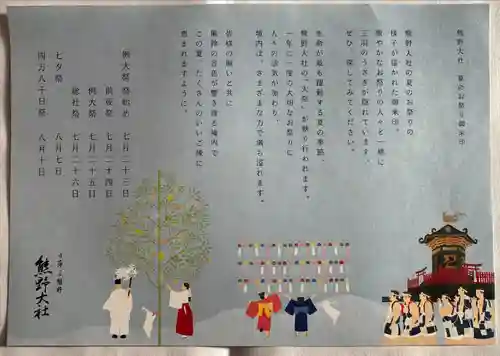 熊野大社　夏のお祭り御朱印
熊野大社の夏のお祭りの
様子が描かれた御朱印。
賑やかなお祭りの人々と一緒に
三羽のうさぎが隠れています。
ぜひ、探してみてください。
生命が最も躍動する夏の季節、
熊野大社の「大祭」が執り行われます。
一年に一度の大切なお祭りに
人々の活気が加わり、
境内は、さまざまな力で満ち溢れます。
皆様の願いと共に
風鈴の音色が響き渡る境内で
この夏、たくさんのいいご縁に
恵まれますように。
例大祭　祭始め　七月二十三日
前夜祭　七月二十四日
例大祭　七月二十五日
総社祭　七月二十六日
七夕祭　八月七日
四万八千日祭　八月十日
日本三熊野
熊野大社